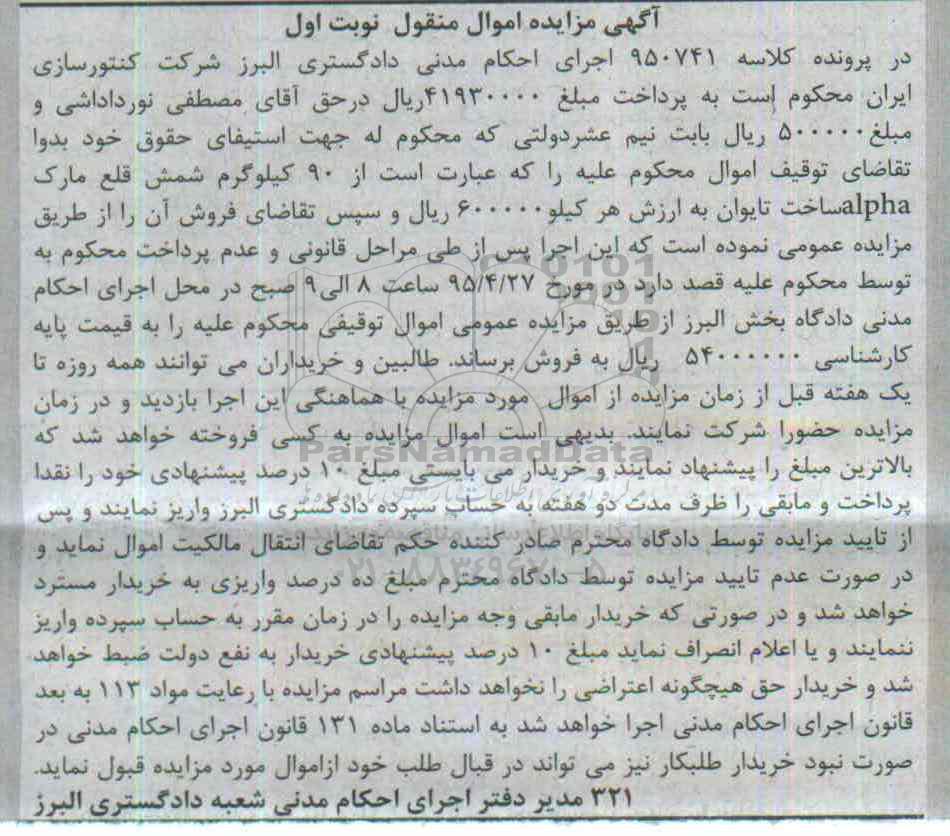 آگهی مزایده اموال منقول نوبت اول
در پرونده کلاسه ۹۵۰۷۴۱ اجرای احکام مدنی دادگستری البرز شرکت کنتورسازی
ایران محکوم است به پرداخت مبلغ ۴۱۹۳۰۰۰۰ریال درحق آقای مصطفی نورداداشی و
مبلغ۵۰۰۰۰۰ ریال بابت نیم عشردولتی که محکوم له جهت استیفای حقوق خود بدوا
تقاضای توقیف اموال محکوم علیه را که عبارت است از ۹۰ کیلوگرم شمش قلع مارک
alphaساخت تایوان به ارزش هر کیلو۶۰۰۰۰۰ ریال و سپس تقاضای فروش آن را از طریق
مزایده عمومی نموده است که این اجرا پس از طی مراحل قانونی و عدم پرداخت محکوم به
توسط محکوم علیه قصد دارد در مورخ ۹۵/۴/۲۷ ساعت ۸ الی۹ صبح در محل اجرای احکام
مدنی دادگاه بخش البرز از طریق مزایده عمومی اموال توقیفی محکوم علیه را به قیمت پایه
کارشناسی ۵۴۰۰۰۰۰۰ ریال به فروش برساند. طالبین و خریداران می توانند همه روزه تا
یک هفته قبل از زمان مزایده از اموال مورد مزایده با هماهنگی این اجرا بازدید و در زمان
مزایده حضورا شرکت نمایند. بدیهی است اموال مزایده به کسی فروخته خواهد شد که
ParsNamadData
بالاترین مبلغ را پیشنهاد نمایند و خریدار می بایستی مبلغ ۱۰ درصد پیشنهادی خود را نقدا
پرداخت و مابقی را ظرف مدت دو هفته به حساب سپرده دادگستری البرز واریز نمایند و پس
از تایید مزایده توسط دادگاه محترم صادر کننده حکم تقاضای انتقال مالکیت اموال نماید و
۰۲۱-۸۸۳۴۹۶۷۰-۵
در صورت عدم تایید مزایده توسط دادگاه محترم مبلغ ده درصد واریزی به خریدار مسترد
خواهد شد و در صورتی که خریدار مابقی وجه مزایده را در زمان مقرر به حساب سپرده واریز
ننمایند و یا اعلام انصراف نماید مبلغ ۱۰ درصد پیشنهادی خریدار به نفع دولت ضبط خواهد
شد و خریدار حق هیچگونه اعتراضی را نخواهد داشت مراسم مزایده با رعایت مواد ۱۱۳ به بعد
قانون اجرای احکام مدنی اجرا خواهد شد به استناد ماده ۱۳۱ قانون اجرای احکام مدنی در
صورت نبود خریدار طلبکار نیز می تواند در قبال طلب خود ازاموال مورد مزایده قبول نماید.
۳۲۱ مدیر دفتر اجرای احکام مدنی شعبه دادگستری البرز